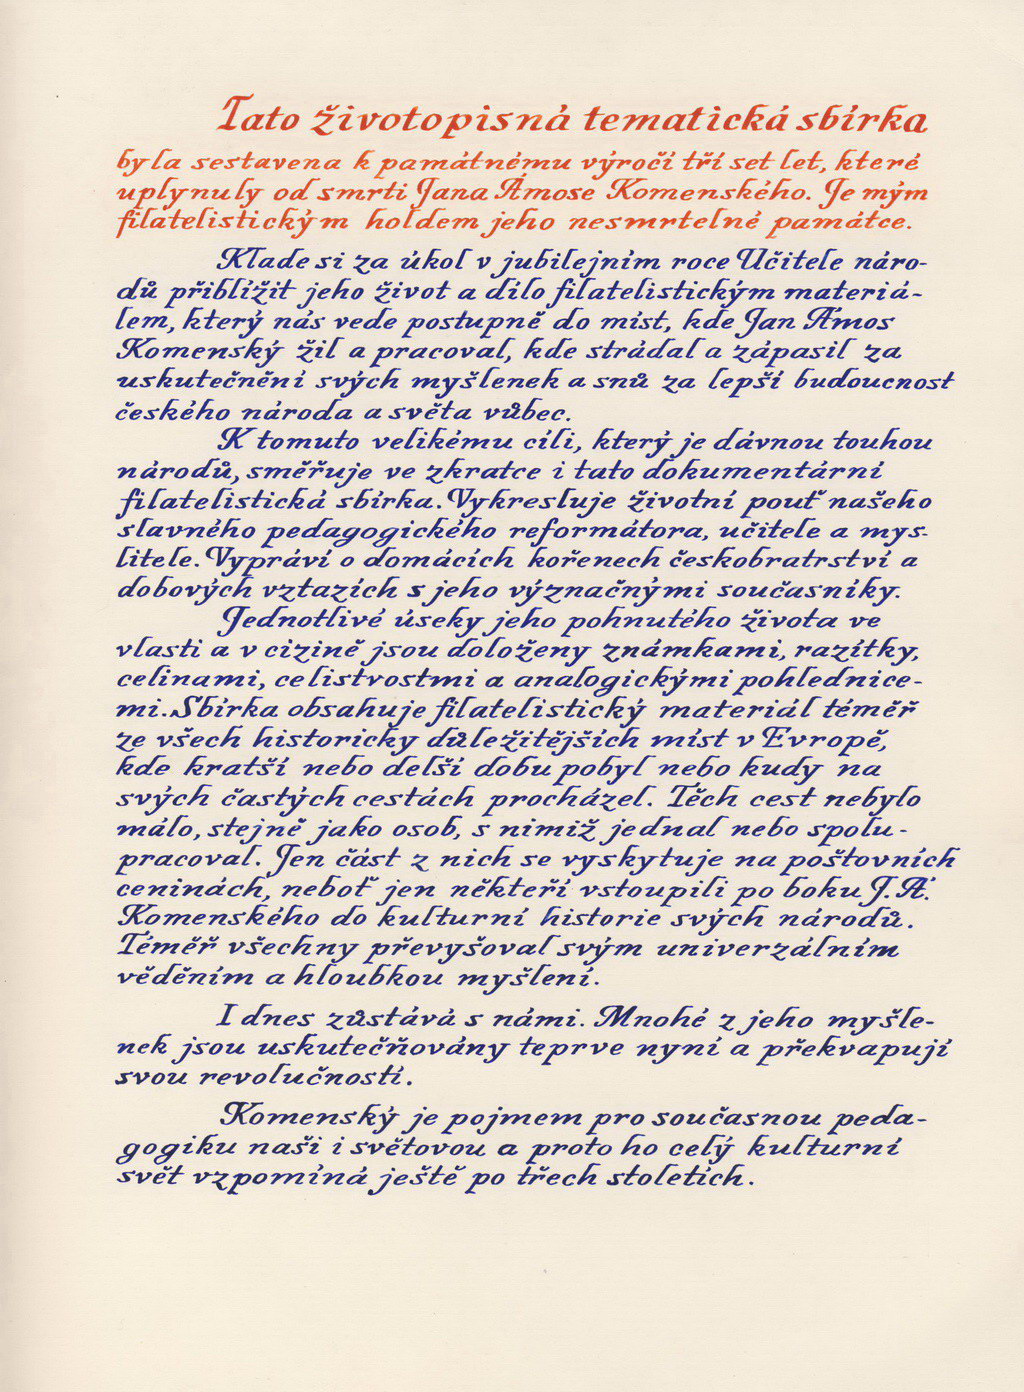 Tato životopisná tematická sbírka
byla sestavena k památnému výročí tří set let, které
uplynuly od smrti Jana Ámose Komenského. Je mým
filatelistickým holdem jeho nesmrtelné památce.
Klade si za úkol v jubilejním roce Učitele náro-
dů přiblížit jeho život a dílo filatelistickým materiá-
lem, který nás vede postupně do míst, kde Jan Ámos
Komenský žil a pracoval, kde strádal a zápasil za
uskutečnění svých myšlenek a snů za lepší budoucnost
českého národa a světa vůbec.
K tomuto velikému cíli, který je dávnou touhou
národů, směřuje ve zkratce i tato dokumentární
filatelistická sbírka. Vykresluje životní pouť našeho
slavného pedagogického reformátora, učitele a mys-
litele. Vypráví o domácích kořenech českobratrství a
dobových vztazích s jeho význačnými současníky.
Jednotlivé úseky jeho pohnutého života ve
vlasti a v cizině jsou doloženy známkami, razítky,
celinami, celistvostmi a analogickými pohlednice-
mi. Sbírka obsahuje filatelistický materiál téměř
ze všech historicky důležitějších míst v Evropě,
kde kratší nebo delší dobu pobyl nebo kudy na
svých častých cestách procházel. Těch cest nebylo
málo, stejně jako osob, s nimiž jednal nebo spolu-
pracoval. Jen část z nich se vyskytuje na poštovních
ceninách, neboť jen někteří vstoupili po boku J. Á.
Komenského do kulturní historie svých národů.
Téměř všechny převyšoval svým univerzálním
věděním a hloubkou myšlení.
I dnes zůstává s námi. Mnohé z jeho myšle-
nek jsou uskutečňovány teprve nyní a překvapují
svou revolučností.
Komenský je pojmem pro současnou peda-
gogiku naši i světovou a proto ho celý kulturní
svět vzpomíná ještě po třech stoletích.